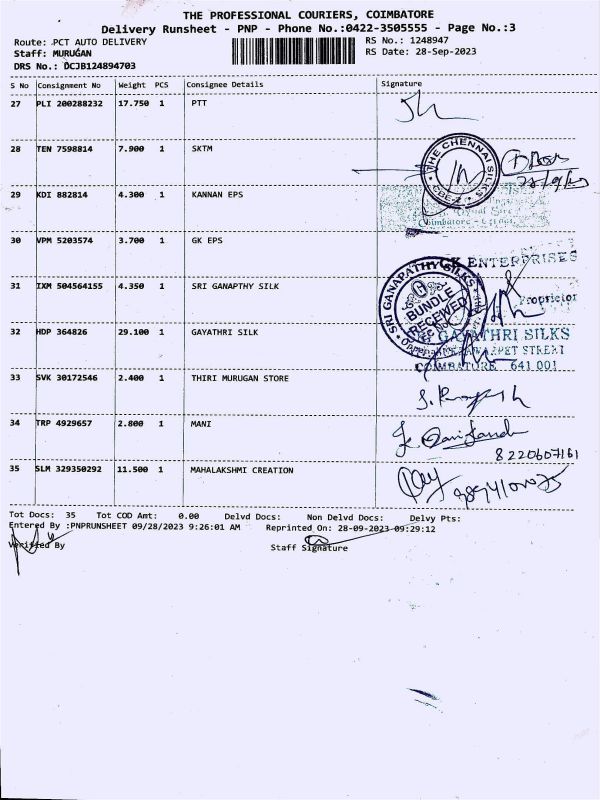 THE PROFESSIONAL COURIERS, COIMBATORE
Delivery Runsheet - PNP - Phone No.:0422-3505555 - Page No.:3
Route: PCT AUTO DELIVERY RS No.: 1248947
Staff: MURUGAN RS Date: 28-Sep-2023
DRS No.: DCJB124894703
S No Consignment No Weight PCS Consignee Details Signature
27 PLI 200288232 17.750 1 PTT
28 TEN 7598814 7.900 1 SKTM
THE CHENNAI SILKS
CBE-1
29 KDI 882814 4.300 1 KANNAN EPS
Coimbatore - 641001
30 VPM 5203574 3.700 1 GK EPS
GK ENTERPRISES
Proprietor
31 IXM 504564155 4.350 1 SRI GANAPTHY SILK
SRI GANAPATHY SILKS
BUNDLE
RECEIVED
32 HDP 364826 29.100 1 GAYATHRI SILK
GAYATHRI SILKS
STREET
COIMBATORE 641 001
33 SVK 30172546 2.400 1 THIRI MURUGAN STORE
34 TRP 4929657 2.800 1 MANI
8220607161
35 SLM 329350292 11.500 1 MAHALAKSHMI CREATION
Tot Docs: 35 Tot COD Amt: 0.00 Delvd Docs: Non Delvd Docs: Delvy Pts:
Entered By :PNPRUNSHEET 09/28/2023 9:26:01 AM Reprinted On: 28-09-2023 09:29:12
Verified By Staff Signature